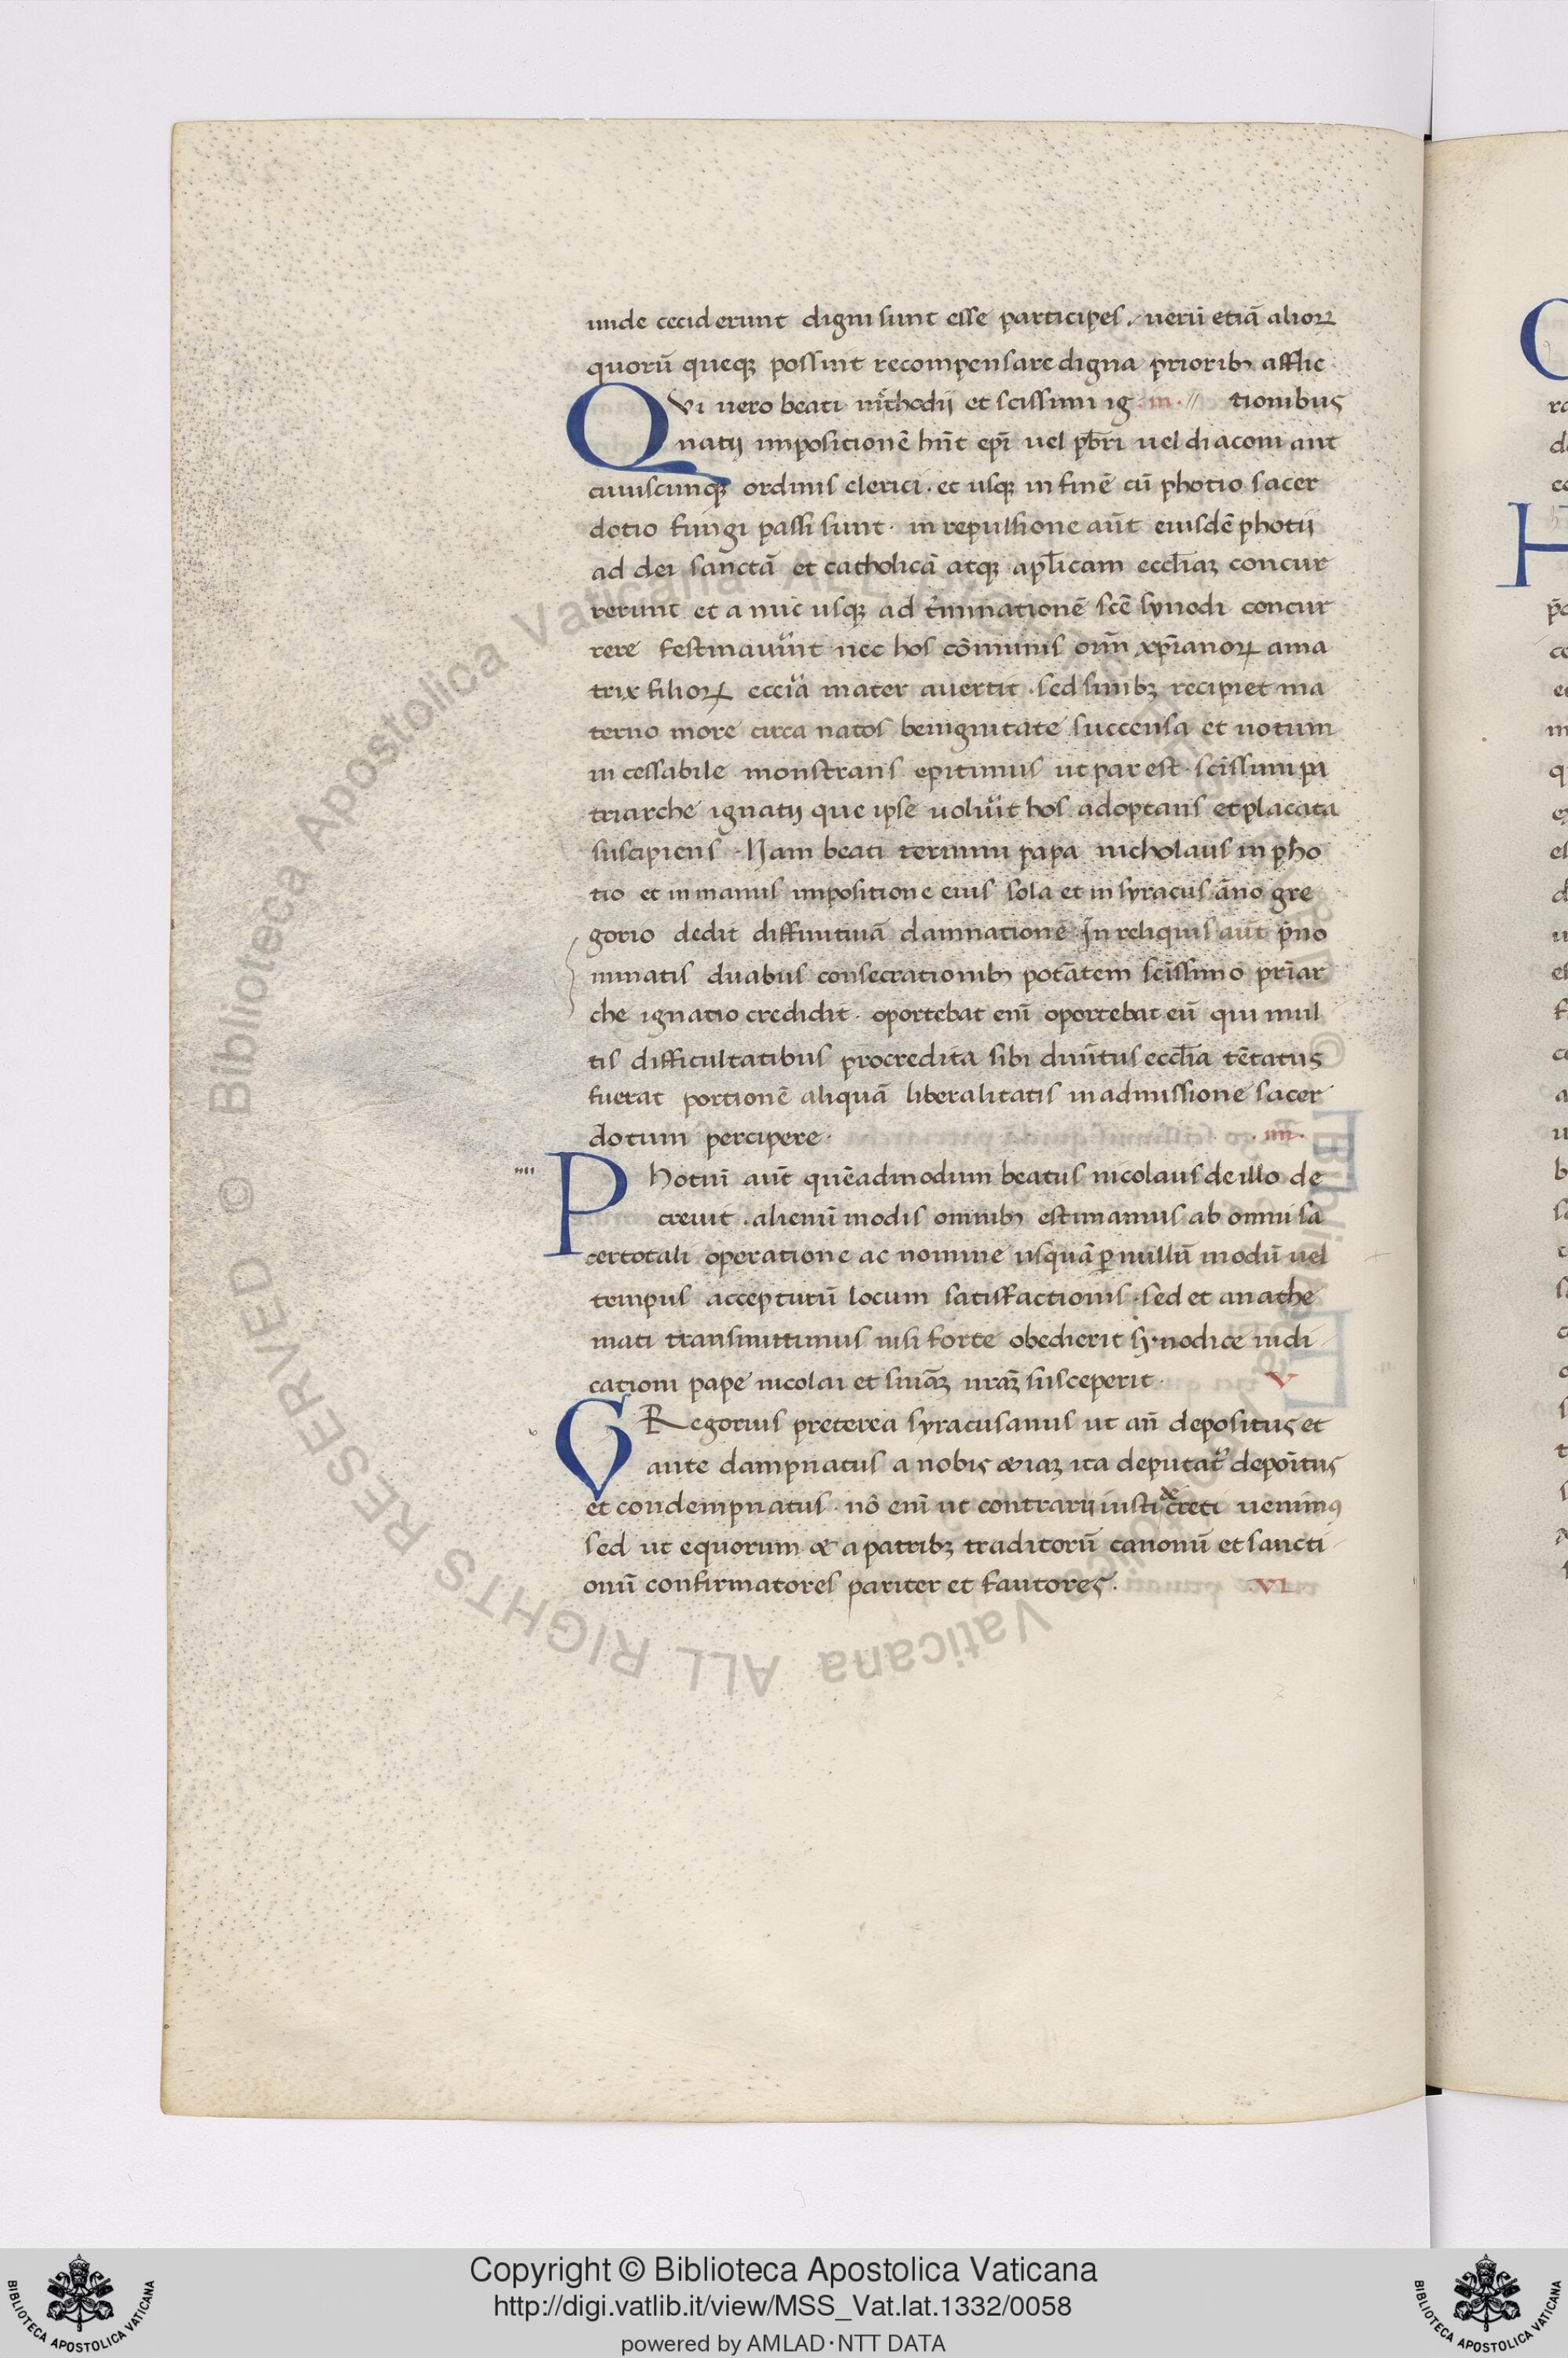 unde ceciderunt digni sunt esse participes. uerū etiā alioꝝ
quorū queqꝫ possint recompensare digna prioribꝫ afflic
Qvi uero beati methodij et scissimi ig .iii. // tionibus
natij impositionē hn̄t ep̄i uel pb̄ri uel diaconi aut
cuiuscunqꝫ ordinis clerici. et usqꝫ in finē cū photio sacer
dotio fungi passi sunt. in repulsione aūt eiusdē photij
ad dei sanctā et catholicā atqꝫ apl̄icam eccl̄iaꝫ concur
rerunt et a nūc usqꝫ ad t̄minationē scē synodi concur
rere festinauūnt nec hos cōmunis om̄n xp̄ianoꝝ ama
trix filioꝝ eccl̄ia mater auertit. sed simbꝫ recipiet ma
terno more circa natos benignitate succensa et uotum
in cessabile monstrans epitimiis ut par est. scissimi pa
triarche ignatij que ipse uolūit hos adoptans et placata
suscipiens. Nam beati termini papa nicholaus in pho
tio et in manus impositione eius sola et in syracusāno gre
gorio dedit diffinitiuā damnationē. In reliquis aūt p̄no
minatis duabus consecrationibꝫ potātem scissimo priar
che ignatio credidit. oportebat enī oportebat eū qui mul
tis difficultatibus pro credita sibi diuinītus eccl̄ia tētatus
fuerat portionē aliquā liberalitatis in admissione sacer
dotum percipere. .iiii.
'''' Photiū aūt quēadmodum beatus nicolaus de illo de
creuit. alienū modis omnibꝫ estimamus ab omni sa
certotali operatione ac nomine usquā ꝑ nullū modū uel
tempus accepturū locum satisfactionis. sed et anathe
mati transmittimus nisi forte obedierit synodice iudi
cationi pape nicolai et suiāꝫ nrāꝫ susceperit. V
GRegorius preterea syracusanus ut an̄ depositus et
ante dampnatus a nobis æ iaꝫ ita deputat᷑ depoītus
et condempnatus. nō enī ut contrarij iusti de creti uenimꝰ
sed ut equorum æ a patribꝫ traditorū canonū et sancti
onū confirmatores pariter et fautores. .VI.
Copyright © Biblioteca Apostolica Vaticana
http://digi.vatlib.it/view/MSS_Vat.lat.1332/0058
powered by AMLAD·NTT DATA